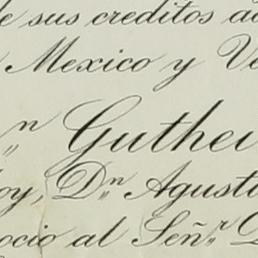 e sus creditos a
Mexico y Ve
n Guthei
oy, Dn Agust
ocio al Señr D